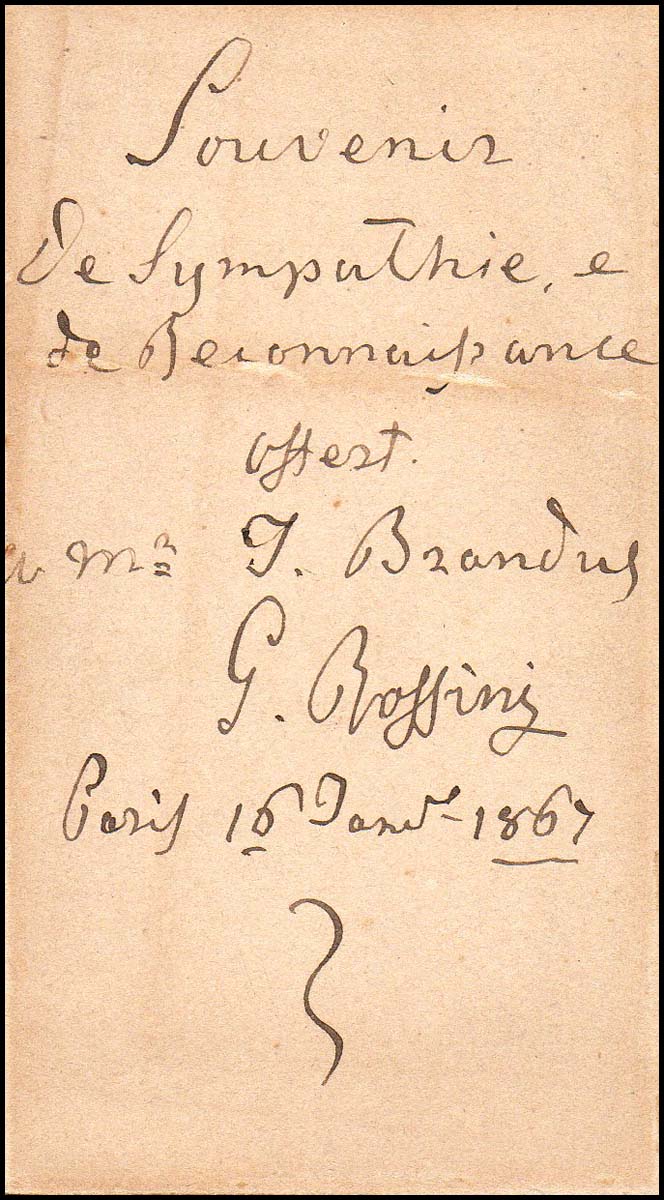 Souvenir
De Sympathie, e
de Reconnaissance
offert.
a Mr J. Brandus
G. Rossini
Paris 16 Janvr 1867